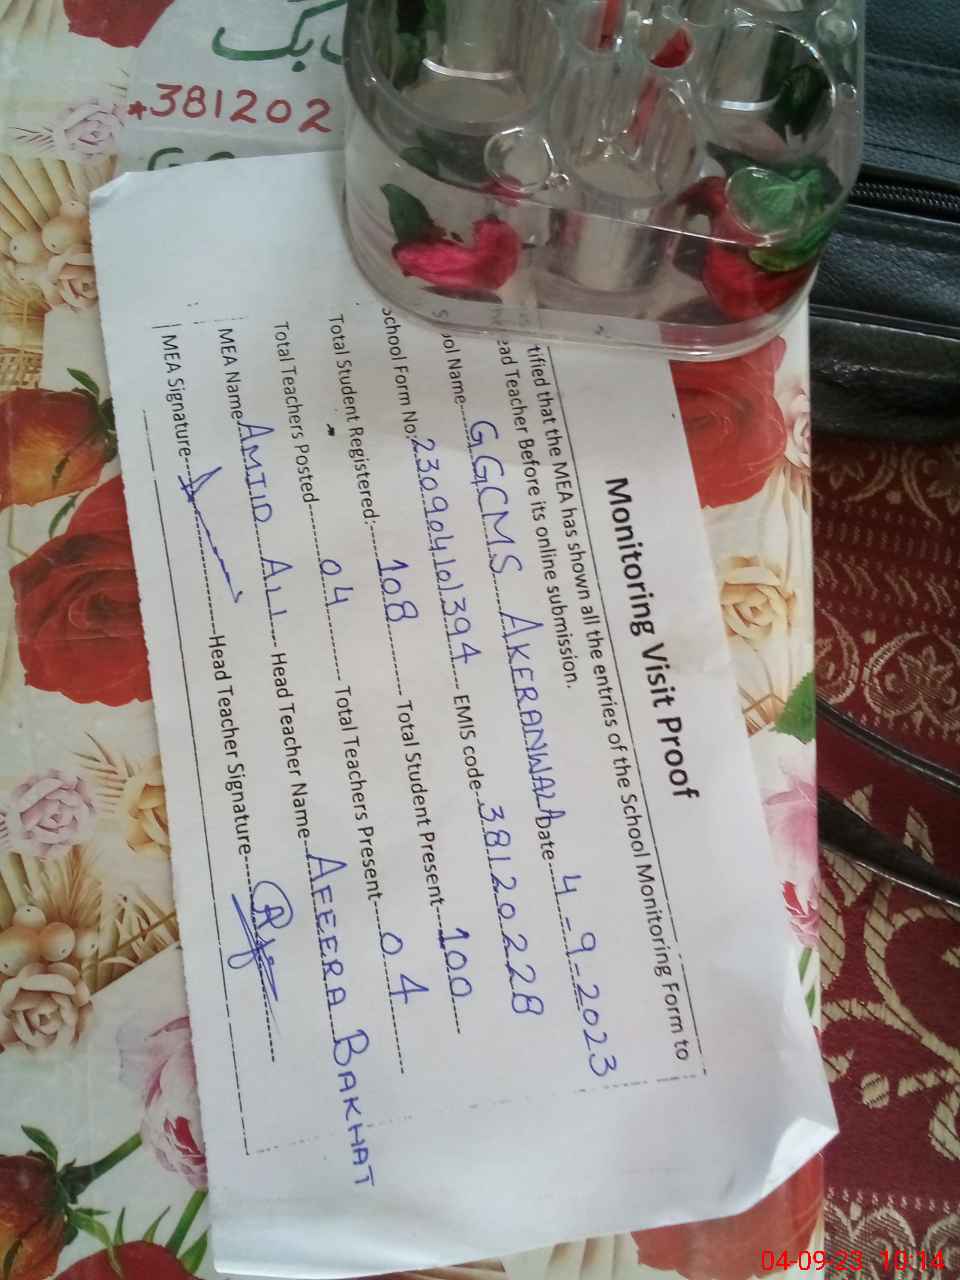 *381202
Monitoring Visit Proof
tified that the MEA has shown all the entries of the School Monitoring Form to
ead Teacher Before its online submission.
ool Name------- GGCMS AKERANWALA Date---- 4-9-2023
School Form No: 230904101394 --- EMIS code--- 38120228
Total Student Registered:---- 108 ------- Total Student Present---- 100 ---
Total Teachers Posted------- 04 ------- Total Teachers Present---- 04 -------
MEA Name AMJID ALI --- Head Teacher Name-- AFEERA BAKHAT
MEA Signature-------------------Head Teacher Signature-----------------
04-09-23 10:14